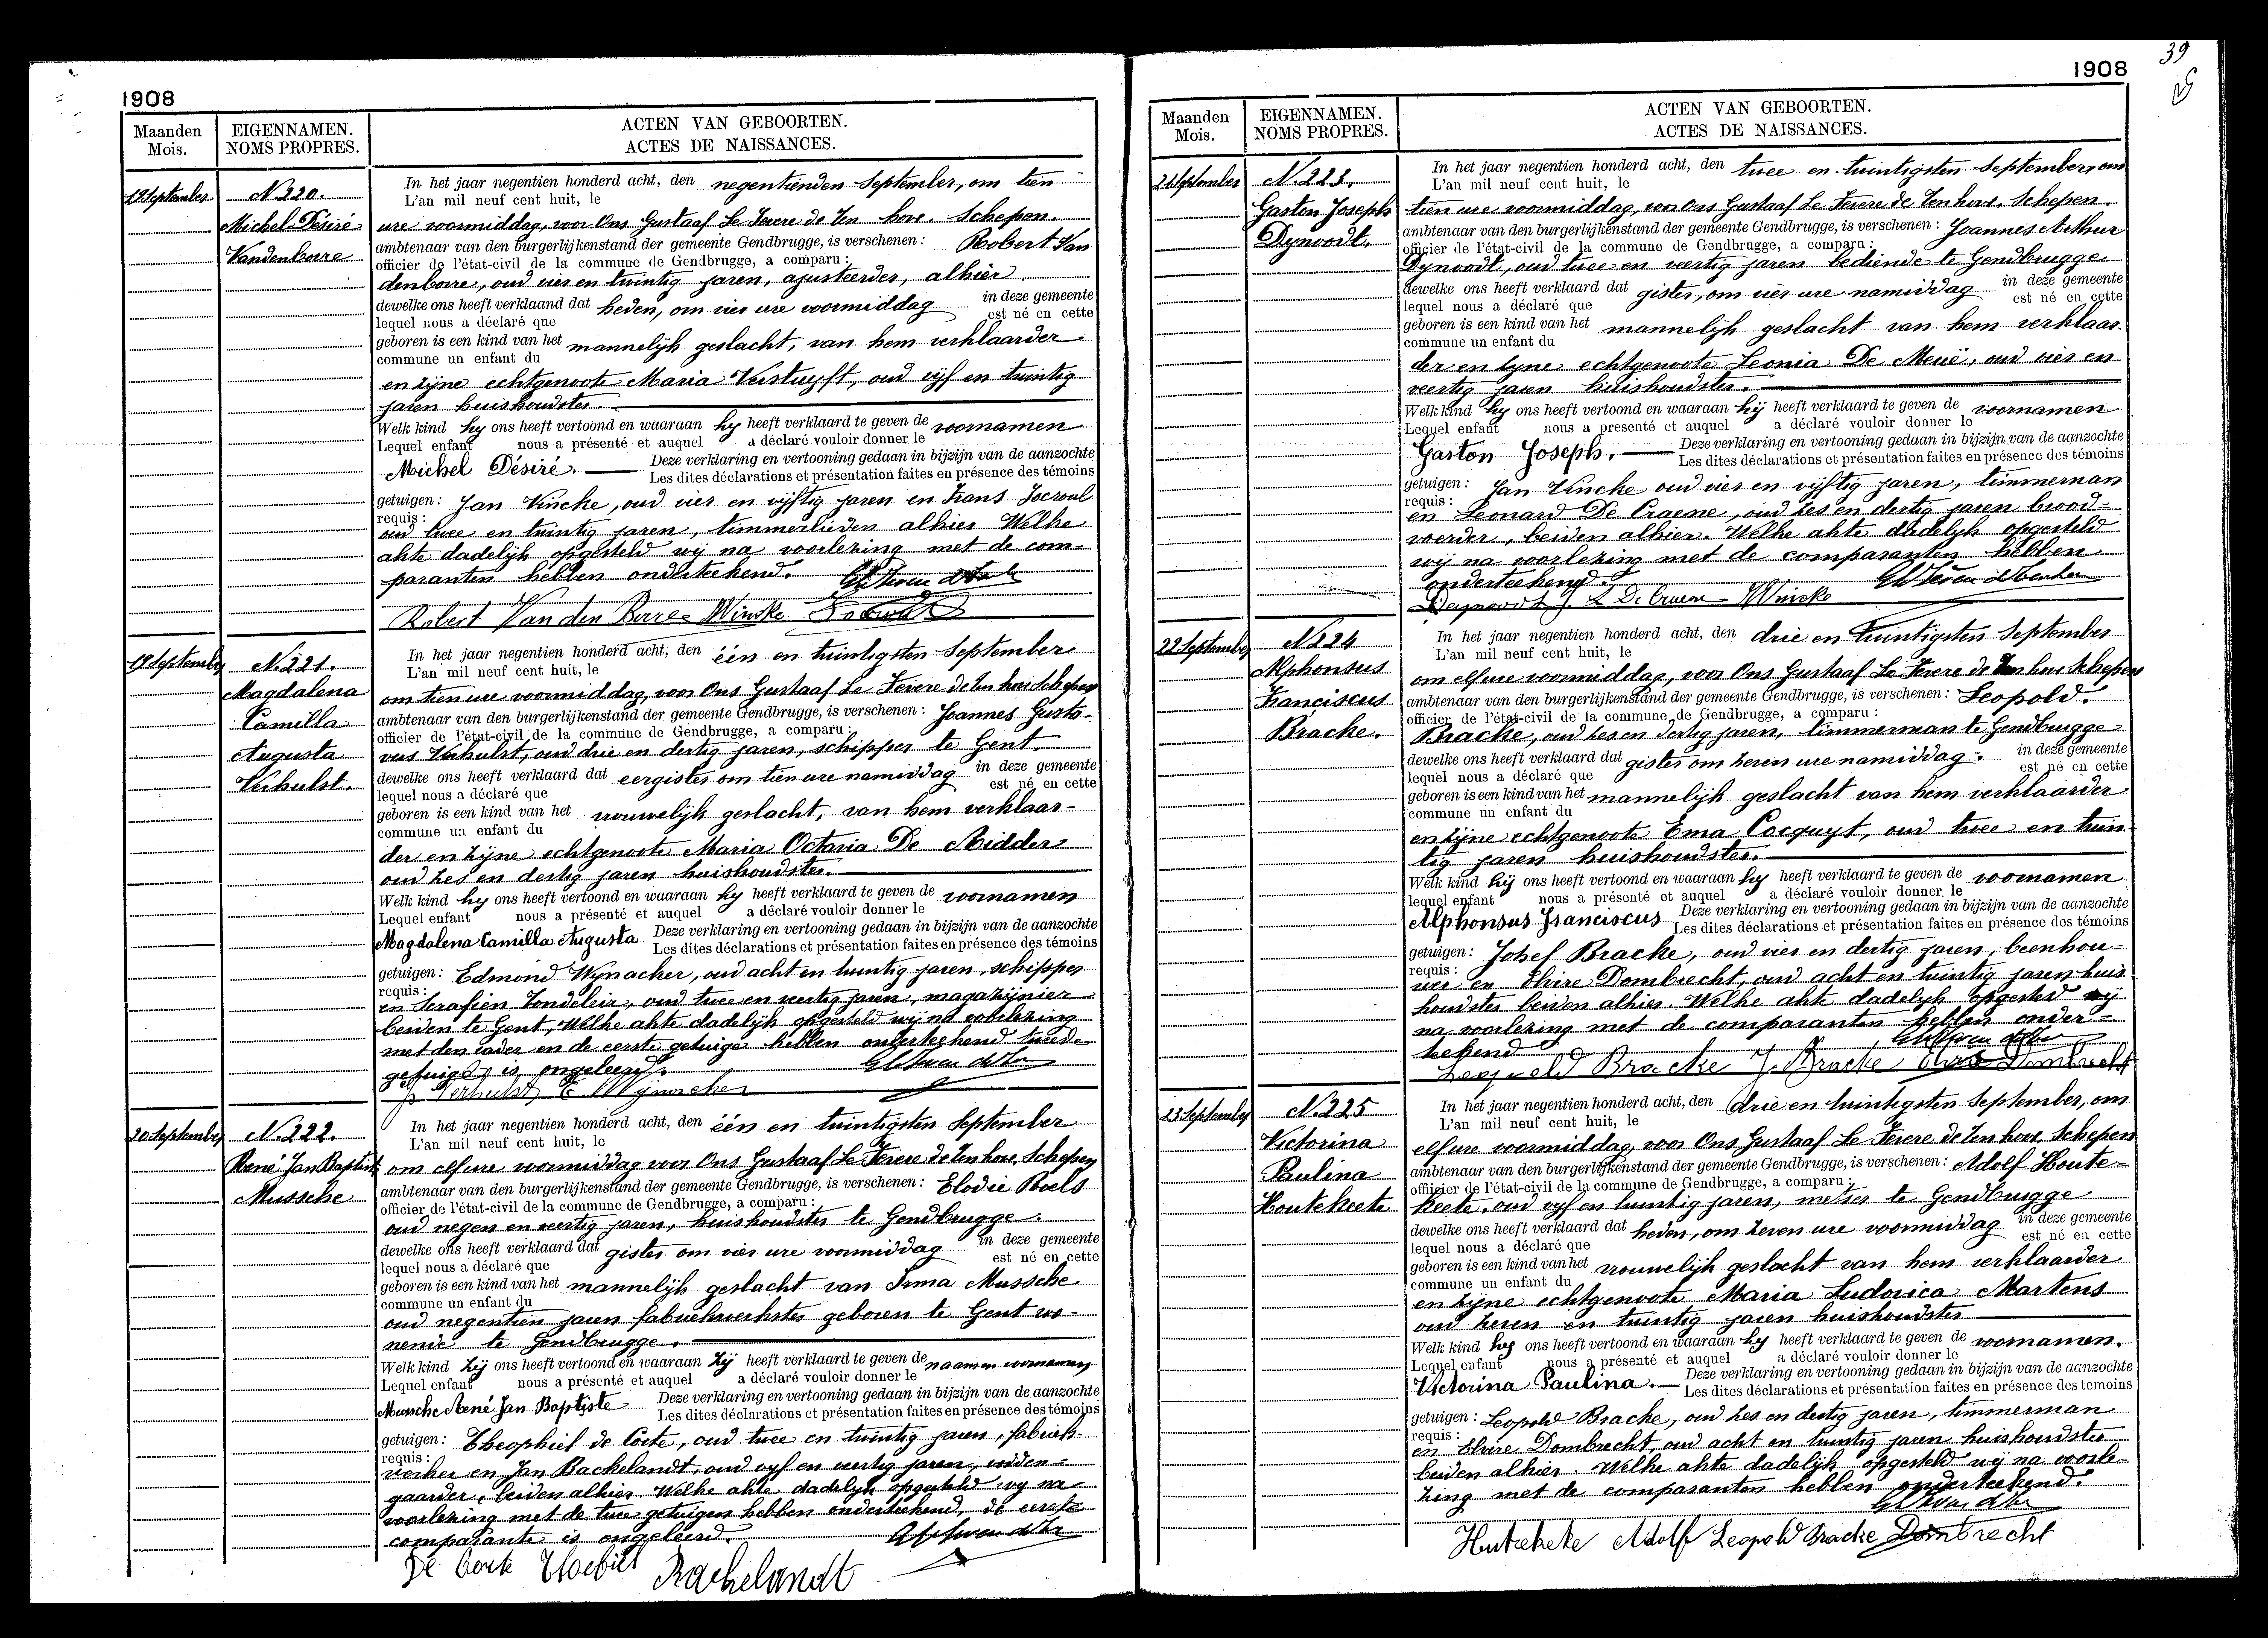 1908
Maanden
Mois.
EIGENNAMEN.
NOMS PROPRES.
ACTEN VAN GEBOORTEN.
ACTES DE NAISSANCES.
19 September
N. 220.
Michel Désiré
Vandenborre
In het jaar negentien honderd acht, den negentienden September, om tien
L'an mil neuf cent huit, le
ure voormiddag, voor Ons Gustaaf Le Fevere de Ten hove. Schepen.
ambtenaar van den burgerlijkenstand der gemeente Gendbrugge, is verschenen: Robert Van
officier de l'état-civil de la commune de Gendbrugge, a comparu:
denborre, oud vier en twintig jaren, ajusteerder, alhier
dewelke ons heeft verklaand dat heden, om vier ure voormiddag in deze gemeente
lequel nous a déclaré que est né en cette
geboren is een kind van het mannelijk geslacht, van hem verklaarder
commune un enfant du
en zijne echtgenoote Maria Verstuyft, oud vijf en twintig
jaren huishoudster.
Welk kind hy ons heeft vertoond en waaraan hy heeft verklaard te geven de voornamen
Lequel enfant nous a présenté et auquel a déclaré vouloir donner le
Michel Désiré. Deze verklaring en vertooning gedaan in bijzijn van de aanzochte
Les dites déclarations et présentation faites en présence des témoins
getuigen: Jan Vincke, oud vier en vijftig jaren en Frans
requis:
oud twee en twintig jaren, timmerlieden alhier Welke
akte dadelijk opgesteld wij na voorlezing met de com-
paranten hebben onderteekend.
Robert Van den Borre Wincke
19 September
N. 221.
Magdalena
Camilla
Augusta
Verhulst.
In het jaar negentien honderd acht, den één en twintigsten September
L'an mil neuf cent huit, le
om tien ure voormiddag, voor Ons Gustaaf Le Fevere de Ten hove Schepen
ambtenaar van den burgerlijkenstand der gemeente Gendbrugge, is verschenen: Joannes Gusta-
officier de l'état-civil de la commune de Gendbrugge, a comparu:
vus Verhulst, oud drie en dertig jaren, schipper te Gent.
dewelke ons heeft verklaard dat eergister om tien ure namiddag in deze gemeente
lequel nous a déclaré que est né en cette
geboren is een kind van het vrouwelijk geslacht, van hem verklaar-
commune un enfant du
der en zijne echtgenoote Maria Octavia De Ridder
oud zes en dertig jaren huishoudster.
Welk kind hy ons heeft vertoond en waaraan hy heeft verklaard te geven de voornamen
Lequel enfant nous a présenté et auquel a déclaré vouloir donner le
Magdalena Camilla Augusta Deze verklaring en vertooning gedaan in bijzijn van de aanzochte
Les dites déclarations et présentation faites en présence des témoins
getuigen: Edmond Wynacker, oud acht en twintig jaren, schipper
requis:
en Serafien Tondeleir, oud twee en veertig jaren, magazijnier
beiden te Gent, Welke akte dadelijk opgesteld wij na voorlezing
met den vader en de eerste getuige hebben onderteekend tweede
getuige is ongeleerd.
J Verhulst E Wijnacker
20 September
N. 222.
René Jan Baptiste
Mussche
In het jaar negentien honderd acht, den één en twintigsten September
L'an mil neuf cent huit, le
om elf ure voormiddag voor Ons Gustaaf Le Fevere de Ten hove, Schepen
ambtenaar van den burgerlijkenstand der gemeente Gendbrugge, is verschenen: Elodie Roels
officier de l'état-civil de la commune de Gendbrugge, a comparu:
oud negen en veertig jaren, huishoudster te Gendbrugge.
dewelke ons heeft verklaard dat gister om vier ure voormiddag in deze gemeente
lequel nous a déclaré que est né en cette
geboren is een kind van het mannelijk geslacht van Irma Mussche
commune un enfant du
oud negentien jaren fabriekwerkster geboren te Gent wo-
nende te Gendbrugge.
Welk kind zij ons heeft vertoond en waaraan zij heeft verklaard te geven de naam en voornamen
Lequel enfant nous a présenté et auquel a déclaré vouloir donner le
Mussche René Jan Baptiste Deze verklaring en vertooning gedaan in bijzijn van de aanzochte
Les dites déclarations et présentation faites en présence des témoins
getuigen: Theophiel de Corte, oud twee en twintig jaren, fabriek-
requis:
werker en Jan Bachelandt, oud vyf en veertig jaren, vodden-
gaarder, beiden alhier. Welke akte dadelyk opgesteld wy na
voorlezing met de twee getuigen hebben onderteekend, de eerste
comparante is ongeleerd.
De Corte Theofiel Bachelandt
39
1908
Maanden
Mois.
EIGENNAMEN.
NOMS PROPRES.
ACTEN VAN GEBOORTEN.
ACTES DE NAISSANCES.
21 September
N. 223.
Gaston Joseph
Dynoodt.
In het jaar negentien honderd acht, den twee en twintigsten September, om
L'an mil neuf cent huit, le
tien ure voormiddag, voor Ons Gustaaf Le Fevere de Ten hove. Schepen.
ambtenaar van den burgerlijkenstand der gemeente Gendbrugge, is verschenen: Joannes Arthur
officier de l'état-civil de la commune de Gendbrugge, a comparu:
Dynoodt, oud twee en veertig jaren bediende te Gendbrugge
dewelke ons heeft verklaard dat gister, om vier ure namiddag in deze gemeente
lequel nous a déclaré que est né en cette
geboren is een kind van het mannelijk geslacht van hem verklaar-
commune un enfant du
der en zyne echtgenoote Leonia De Meue, oud vier en
veertig jaren huishoudster.
Welk kind hy ons heeft vertoond en waaraan hij heeft verklaard te geven de voornamen
Lequel enfant nous a presenté et auquel a déclaré vouloir donner le
Gaston Joseph. Deze verklaring en vertooning gedaan in bijzijn van de aanzochte
Les dites déclarations et présentation faites en présence des témoins
getuigen: Jan Vincke oud vier en vijftig jaren, timmerman
requis:
en Leonard De Craene, oud zes en dertig jaren brood-
voerder, beiden alhier. Welke akte dadelijk opgesteld
wij na voorlezing met de comparanten hebben
onderteekend.
Deynoodt J. L De Craene Wincke
22 September
N. 224
Alphonsus
Franciscus
Bracke.
In het jaar negentien honderd acht, den drie en twintigsten September
L'an mil neuf cent huit, le
om elf ure voormiddag, voor Ons Gustaaf Le Fevere de Ten hove Schepen
ambtenaar van den burgerlijkenstand der gemeente Gendbrugge, is verschenen: Leopold
officier de l'état-civil de la commune de Gendbrugge, a comparu:
Bracke, oud zes en dertig jaren, timmerman te Gendbrugge
dewelke ons heeft verklaard dat gister om zeven ure namiddag. in deze gemeente
lequel nous a déclaré que est né en cette
geboren is een kind van het mannelijk geslacht van hem verklaarder
commune un enfant du
en zijne echtgenoote Ema Cocquyt, oud twee en twin-
tig jaren huishoudster.
Welk kind hij ons heeft vertoond en waaraan hy heeft verklaard te geven de voornamen
lequel enfant nous a présenté et auquel a déclaré vouloir donner le
Alphonsus Franciscus Deze verklaring en vertooning gedaan in bijzijn van de aanzochte
Les dites déclarations et présentation faites en présence des témoins
getuigen: Jozef Bracke, oud vier en dertig jaren, beenhou-
requis:
wer en Elvire Dombrecht, oud acht en twintig jaren huis
houdster beiden alhier. Welke akte dadelijk opgesteld wij
na voorlezing met de comparanten hebben onder-
teekend
Leopold Bracke J. Bracke Elvire Dombrecht
23 September
N. 225
Victorina
Paulina
Houtekeete
In het jaar negentien honderd acht, den drie en twintigsten September, om
L'an mil neuf cent huit, le
elf ure voormiddag, voor Ons Gustaaf Le Fevere de Ten hove, Schepen
ambtenaar van den burgerlijkenstand der gemeente Gendbrugge, is verschenen: Adolf Houte-
officier de l'état-civil de la commune de Gendbrugge, a comparu:
keete, oud vyf en twintig jaren, metser te Gendbrugge
dewelke ons heeft verklaard dat heden, om zeven ure voormiddag in deze gemeente
lequel nous a déclaré que est né en cette
geboren is een kind van het vrouwelijk geslacht van hem verklaarder
commune un enfant du
en zijne echtgenoote Maria Ludovica Martens
oud zeven en twintig jaren huishoudster
Welk kind hy ons heeft vertoond en waaraan hy heeft verklaard te geven de voornamen.
Lequel enfant nous a présenté et auquel a déclaré vouloir donner le
Victorina Paulina. Deze verklaring en vertooning gedaan in bijzijn van de aanzochte
Les dites déclarations et présentation faites en présence des temoins
getuigen: Leopold Bracke, oud zes en dertig jaren, timmerman
requis:
en Elvire Dombrecht, oud acht en twintig jaren huishoudster
beiden alhier. Welke akte dadelijk opgesteld wij na voorle-
zing met de comparanten hebben onderteekend.
Hutekete Adolf Leopold Bracke Dombrecht